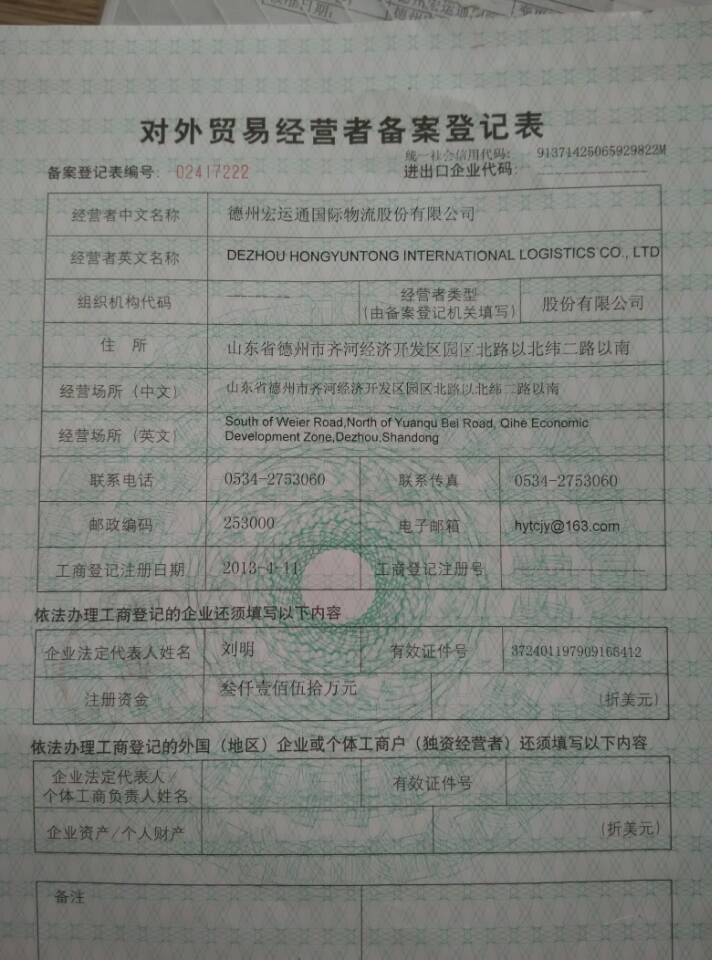 对外贸易经营者备案登记表
统一社会信用代码: 91371425065929822M
备案登记表编号: 02417222 进出口企业代码:
经营者中文名称 德州宏运通国际物流股份有限公司
经营者英文名称 DEZHOU HONGYUNTONG INTERNATIONAL LOGISTICS CO., LTD
组织机构代码 经营者类型 股份有限公司
(由备案登记机关填写)
住 所 山东省德州市齐河经济开发区园区北路以北纬二路以南
经营场所(中文) 山东省德州市齐河经济开发区园区北路以北纬二路以南
经营场所(英文) South of Weier Road,North of Yuanqu Bei Road, Qihe Economic
Development Zone,Dezhou,Shandong
联系电话 0534-2753060 联系传真 0534-2753060
邮政编码 253000 电子邮箱 hytcjy@163.com
工商登记注册日期 2013-4-11 工商登记注册号
依法办理工商登记的企业还须填写以下内容
企业法定代表人姓名 刘明 有效证件号 372401197909168412
注册资金 叁仟壹佰伍拾万元 (折美元)
依法办理工商登记的外国(地区)企业或个体工商户(独资经营者)还须填写以下内容
企业法定代表人/ 有效证件号
个体工商负责人姓名
企业资产/个人财产 (折美元)
备注